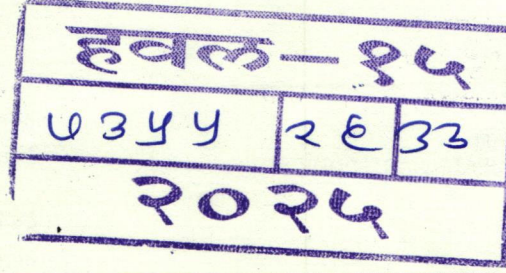 हवल-१५
७३५५ २६ ३३
२०२५